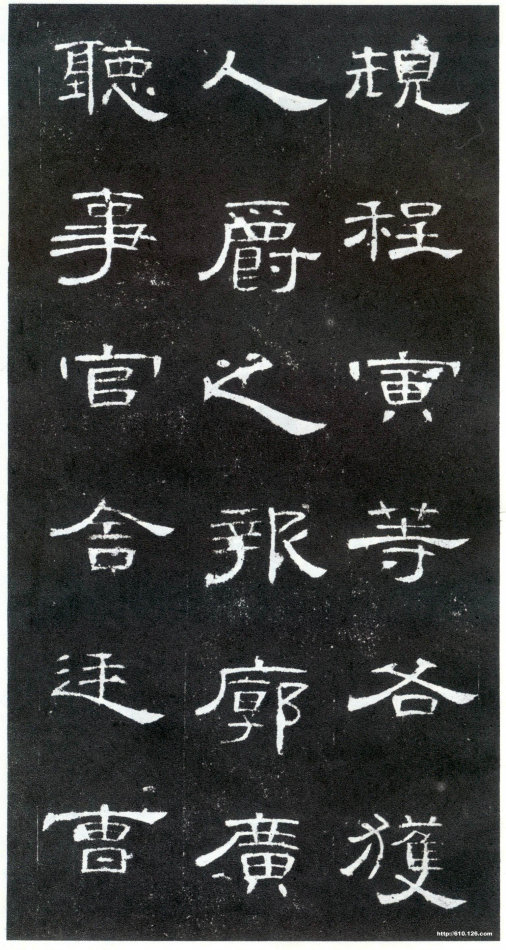 規程寅等各獲
人爵之報廓廣
聽事官舍廷曹
http://610.126.com